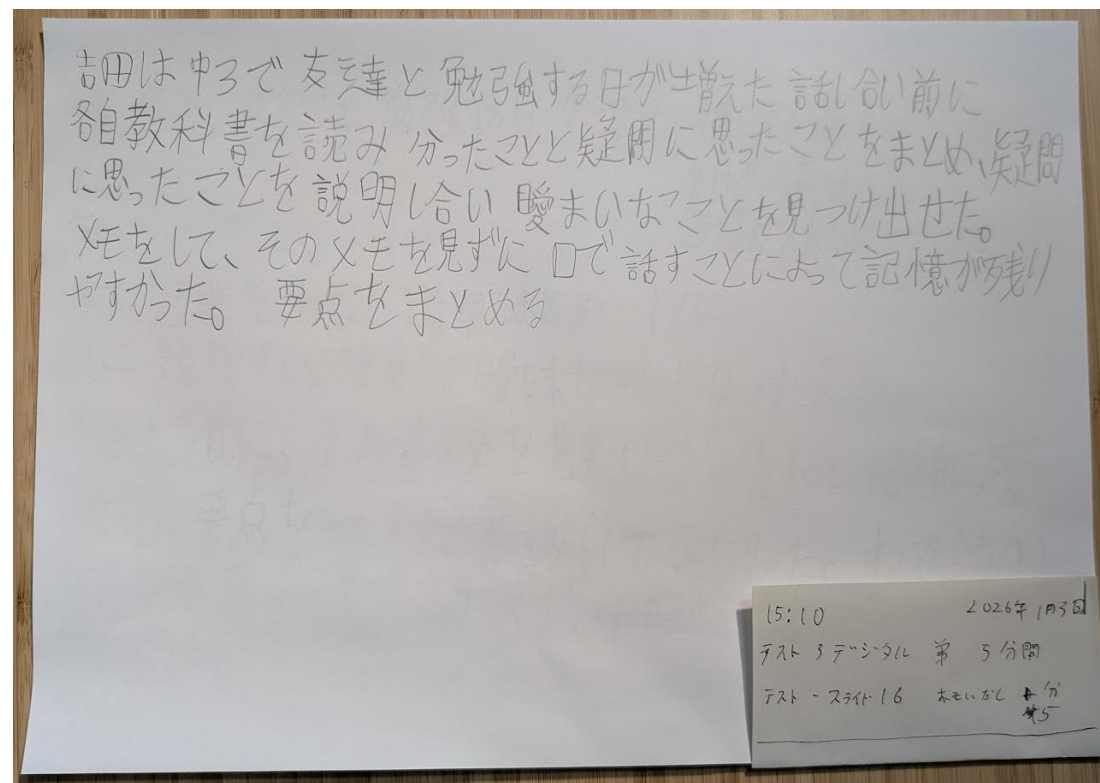 吉田は中3で友達と勉強する日が増えた 話し合い前に
各自教科書を読み 分ったことと疑問に思ったことをまとめ、疑問
に思ったことを説明し合い 曖まいなことを見つけ出せた。
メモをして、そのメモを見ずに 口で話すことによって記憶が残り
やすかった。 要点をまとめる
15:10 2026年1月3日
テスト3デジタル 第 5分間
テスト-スライド16 おもいだし 分
5